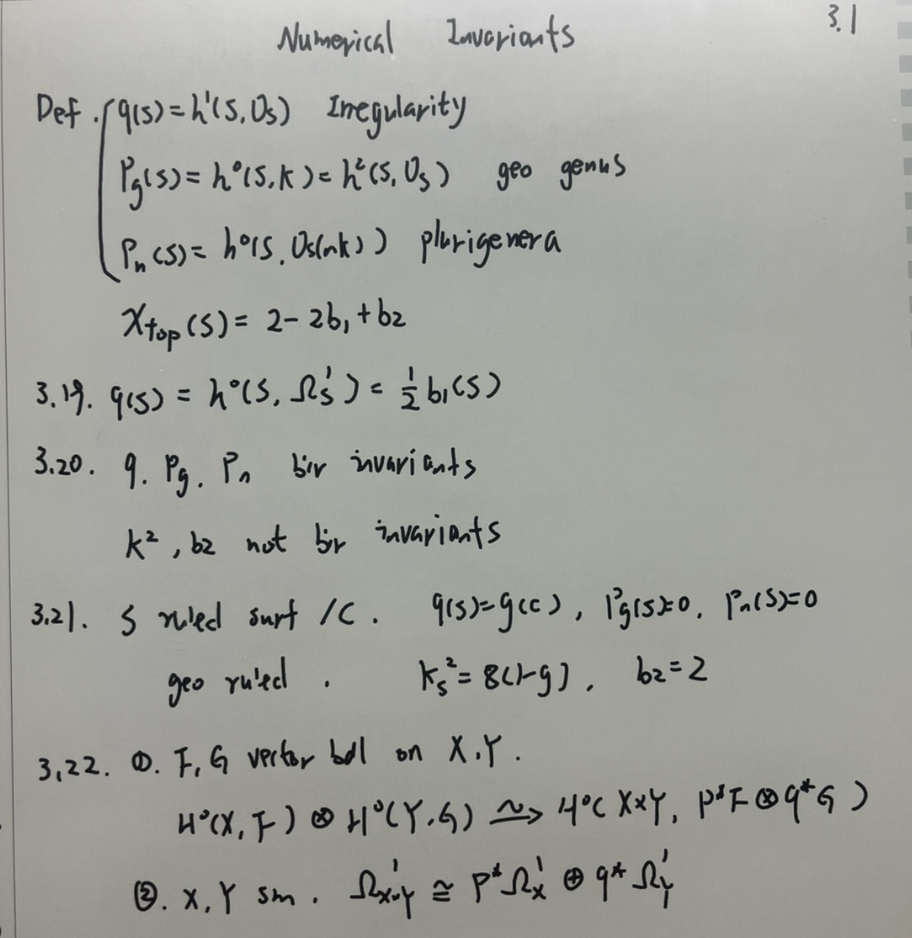 Numerical Invariants 3.1
Def. q(S) = h¹(S, O_S) Irregularity
P_g(S) = h⁰(S, K) = h²(S, O_S) geo genus
P_n(S) = h⁰(S, O_S(nK)) plurigenera
χ_top(S) = 2 - 2b₁ + b₂
3.19. q(S) = h⁰(S, Ω_S¹) = ½ b₁(S)
3.20. q, P_g, P_n bir invariants
K², b₂ not bir invariants
3.21. S ruled surf /C. q(S) = g(C), P_g(S) = 0, P_n(S) = 0
geo ruled. K_S² = 8(1-g), b₂ = 2
3.22. ①. F, G vector bdl on X, Y.
H⁰(X, F) ⊗ H⁰(Y, G) ⥲ H⁰(X×Y, p*F ⊗ q*G)
②. X, Y sm. Ω¹_{X×Y} ≅ p*Ω_X¹ ⊕ q*Ω_Y¹